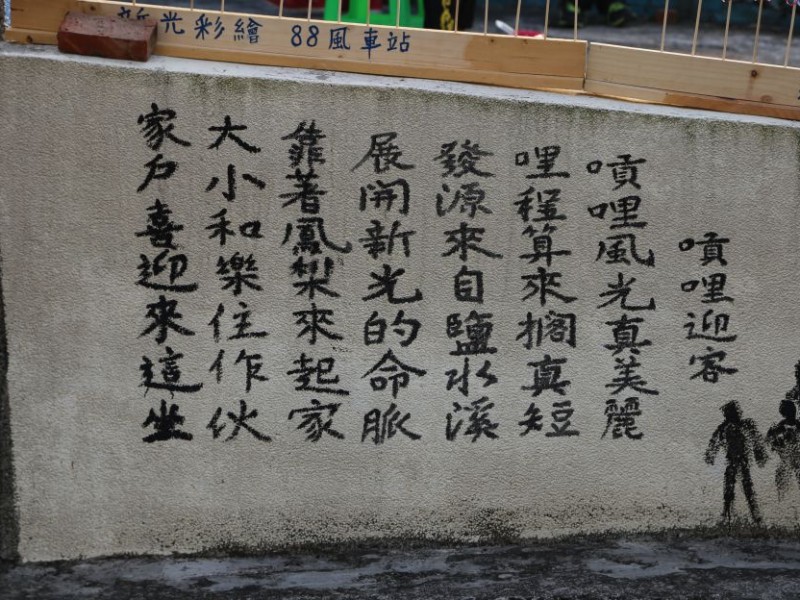 新光彩繪 88風車站
嗊哩迎客
嗊哩風光真美麗
哩程算來擱真短
發源來自鹽水溪
展開新光的命脈
靠著鳳梨來起家
大小和樂住作伙
家戶喜迎來這坐